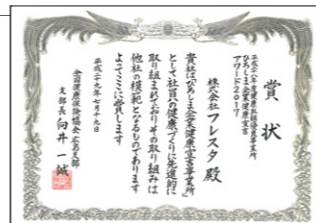 賞状
平成二八年度健康づくり優良事業所
ひろしま企業健康宣言
アワード2017
株式会社 フレスタ 殿
貴社は「ひろしま企業健康宣言事業所」
として社員の健康づくりに先進的に
取り組まれておりその取り組みは
他社の模範となるものであります
よってここに賞します
平成二十九年七月十九日
全国健康保険協会広島支部
支部長 向井 一誠